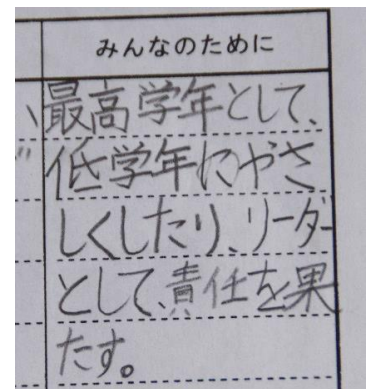 みんなのために
最高学年として、
低学年にやさ
しくしたり、リーダー
として、責任を果
たす。